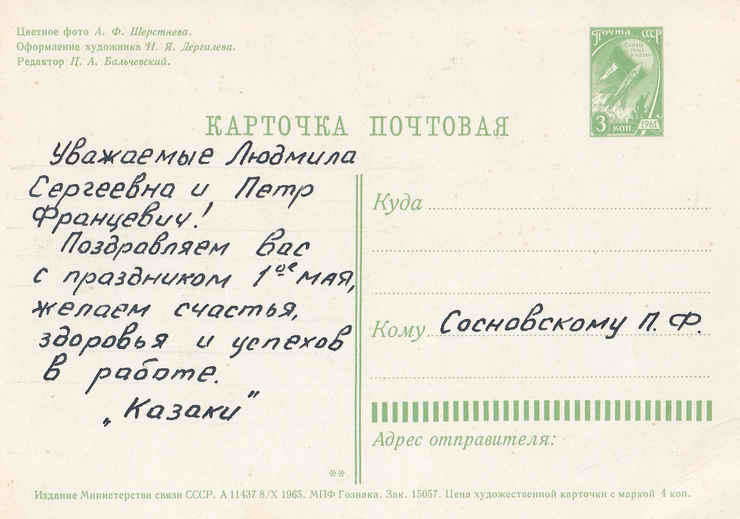 Цветное фото А. Ф. Шерстнева.
Оформление художника И. Я. Дергилева.
Редактор Ц. А. Бальчевский.
Почта СССР
3 коп 1961
КАРТОЧКА ПОЧТОВАЯ
Уважаемые Людмила
Сергеевна и Петр
Францевич!
Поздравляем вас
с праздником 1ое мая,
желаем счастья,
здоровья и успехов
в работе.
„Казаки"
Куда
Кому Сосновскому П. Ф.
Адрес отправителя:
**
Издание Министерства связи СССР. А 11437 8/X 1965. МПФ Гознака. Зак. 15057. Цена художественной карточки с маркой 4 коп.